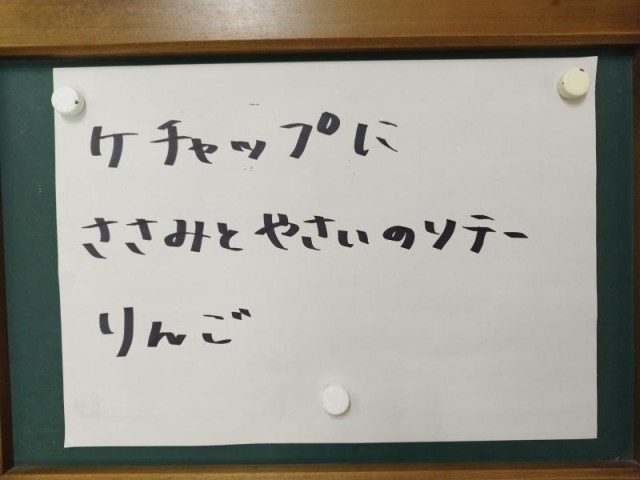 ケチャップに
ささみとやさいのソテー
りんご